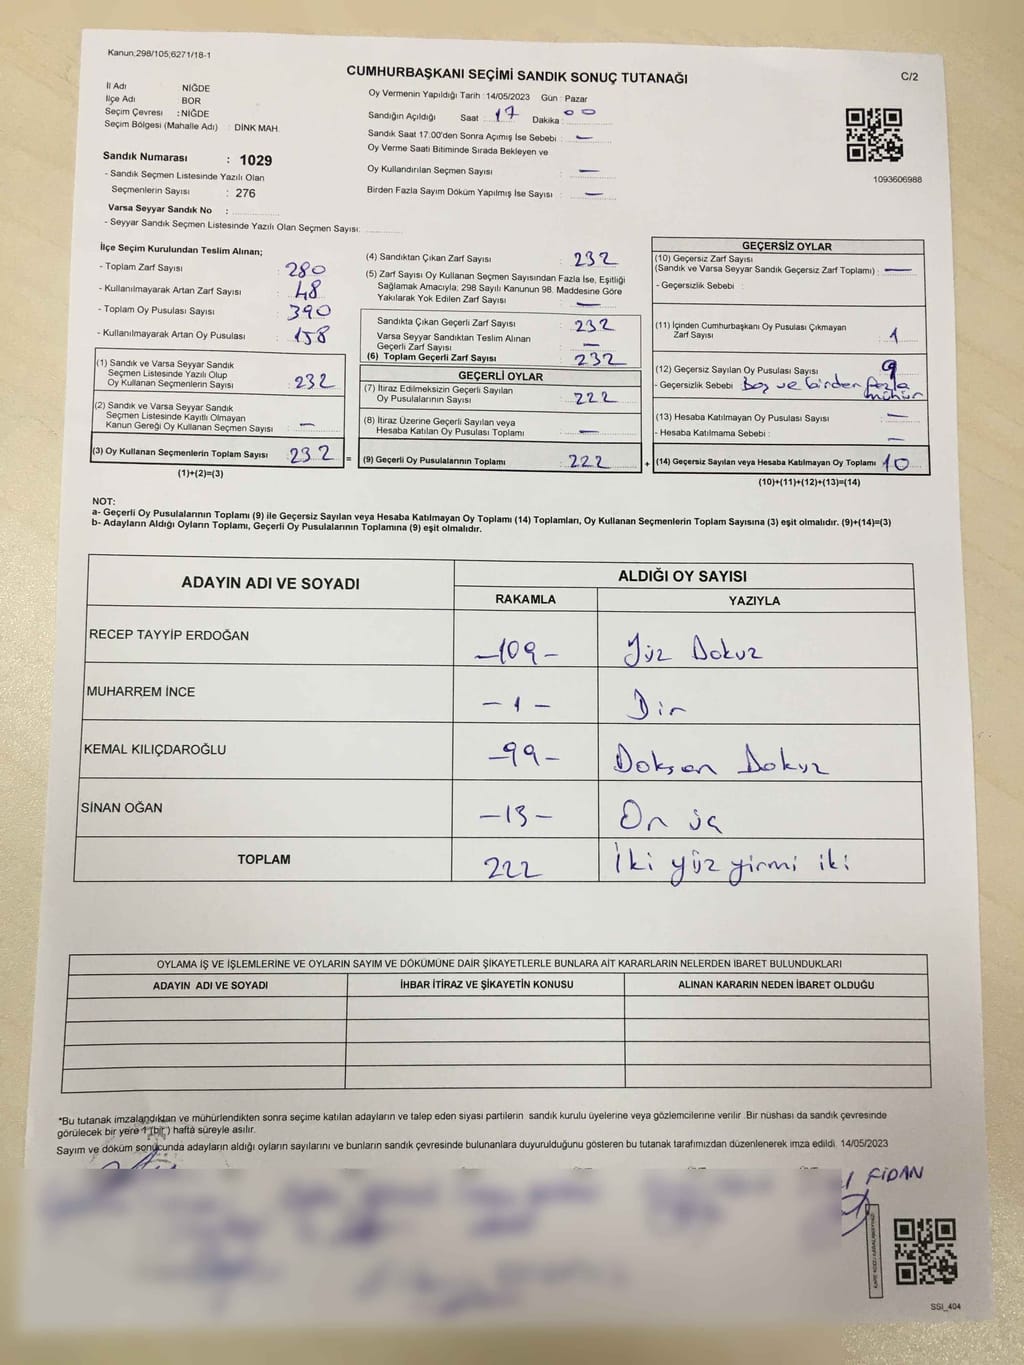 Kanun;298/105;6271/18-1
CUMHURBAŞKANI SEÇİMİ SANDIK SONUÇ TUTANAĞI
C/2
İl Adı NİĞDE
İlçe Adı BOR
Seçim Çevresi : NİĞDE
Seçim Bölgesi (Mahalle Adı) : DİNK MAH.
Oy Vermenin Yapıldığı Tarih : 14/05/2023 Gün : Pazar
Sandığın Açıldığı Saat : 17 Dakika : 00
Sandık Saat 17:00'den Sonra Açımış İse Sebebi : —
Oy Verme Saati Bitiminde Sırada Bekleyen ve
Oy Kullandırılan Seçmen Sayısı : —
Birden Fazla Sayım Döküm Yapılmış İse Sayısı : —
1093606988
Sandık Numarası : 1029
- Sandık Seçmen Listesinde Yazılı Olan
Seçmenlerin Sayısı : 276
Varsa Seyyar Sandık No :
- Seyyar Sandık Seçmen Listesinde Yazılı Olan Seçmen Sayısı:
İlçe Seçim Kurulundan Teslim Alınan;
- Toplam Zarf Sayısı : 280
- Kullanılmayarak Artan Zarf Sayısı : 48
- Toplam Oy Pusulası Sayısı : 390
- Kullanılmayarak Artan Oy Pusulası : 158
(1) Sandık ve Varsa Seyyar Sandık
Seçmen Listesinde Yazılı Olup
Oy Kullanan Seçmenlerin Sayısı : 232
(2) Sandık ve Varsa Seyyar Sandık
Seçmen Listesinde Kayıtlı Olmayan
Kanun Gereği Oy Kullanan Seçmen Sayısı : —
(3) Oy Kullanan Seçmenlerin Toplam Sayısı : 232
(1)+(2)=(3)
(4) Sandıktan Çıkan Zarf Sayısı : 232
(5) Zarf Sayısı Oy Kullanan Seçmen Sayısından Fazla İse, Eşitliği
Sağlamak Amacıyla; 298 Sayılı Kanunun 98. Maddesine Göre
Yakılarak Yok Edilen Zarf Sayısı : —
Sandıkta Çıkan Geçerli Zarf Sayısı : 232
Varsa Seyyar Sandıktan Teslim Alınan
Geçerli Zarf Sayısı : —
(6) Toplam Geçerli Zarf Sayısı : 232
GEÇERLİ OYLAR
(7) İtiraz Edilmeksizin Geçerli Sayılan
Oy Pusulalarının Sayısı : 222
(8) İtiraz Üzerine Geçerli Sayılan veya
Hesaba Katılan Oy Pusulası Toplamı : —
= (9) Geçerli Oy Pusulalarının Toplamı : 222 +
GEÇERSİZ OYLAR
(10) Geçersiz Zarf Sayısı
(Sandık ve Varsa Seyyar Sandık Geçersiz Zarf Toplamı) : —
- Geçersizlik Sebebi :
(11) İçinden Cumhurbaşkanı Oy Pusulası Çıkmayan
Zarf Sayısı : 1
(12) Geçersiz Sayılan Oy Pusulası Sayısı : 9
- Geçersizlik Sebebi : Boş ve birden fazla
mühür
(13) Hesaba Katılmayan Oy Pusulası Sayısı : —
- Hesaba Katılmama Sebebi : —
(14) Geçersiz Sayılan veya Hesaba Katılmayan Oy Toplamı : 10
(10)+(11)+(12)+(13)=(14)
NOT:
a- Geçerli Oy Pusulalarının Toplamı (9) ile Geçersiz Sayılan veya Hesaba Katılmayan Oy Toplamı (14) Toplamları, Oy Kullanan Seçmenlerin Toplam Sayısına (3) eşit olmalıdır. (9)+(14)=(3)
b- Adayların Aldığı Oyların Toplamı, Geçerli Oy Pusulalarının Toplamına (9) eşit olmalıdır.
ADAYIN ADI VE SOYADI ALDIĞI OY SAYISI
RAKAMLA YAZIYLA
RECEP TAYYİP ERDOĞAN –109– Yüz Dokuz
MUHARREM İNCE –1– Bir
KEMAL KILIÇDAROĞLU –99– Doksan Dokuz
SİNAN OĞAN –13– On üç
TOPLAM 222 İki yüz yirmi iki
OYLAMA İŞ VE İŞLEMLERİNE VE OYLARIN SAYIM VE DÖKÜMÜNE DAİR ŞİKAYETLERLE BUNLARA AİT KARARLARIN NELERDEN İBARET BULUNDUKLARI
ADAYIN ADI VE SOYADI İHBAR İTİRAZ VE ŞİKAYETİN KONUSU ALINAN KARARIN NEDEN İBARET OLDUĞU
*Bu tutanak imzalandıktan ve mühürlendikten sonra seçime katılan adayların ve talep eden siyasi partilerin sandık kurulu üyelerine veya gözlemcilerine verilir. Bir nüshası da sandık çevresinde
görülecek bir yere 1 (bir) hafta süreyle asılır.
Sayım ve döküm sonucunda adayların aldığı oyların sayılarını ve bunların sandık çevresinde bulunanlara duyurulduğunu gösteren bu tutanak tarafımızdan düzenlenerek imza edildi. 14/05/2023
FİDAN
SSI_404